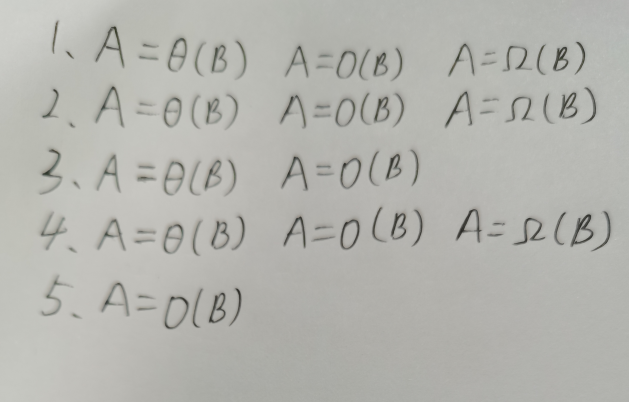 1、A=θ(B) A=O(B) A=Ω(B)
2、A=θ(B) A=O(B) A=Ω(B)
3、A=θ(B) A=O(B)
4、A=θ(B) A=O(B) A=Ω(B)
5、A=O(B)